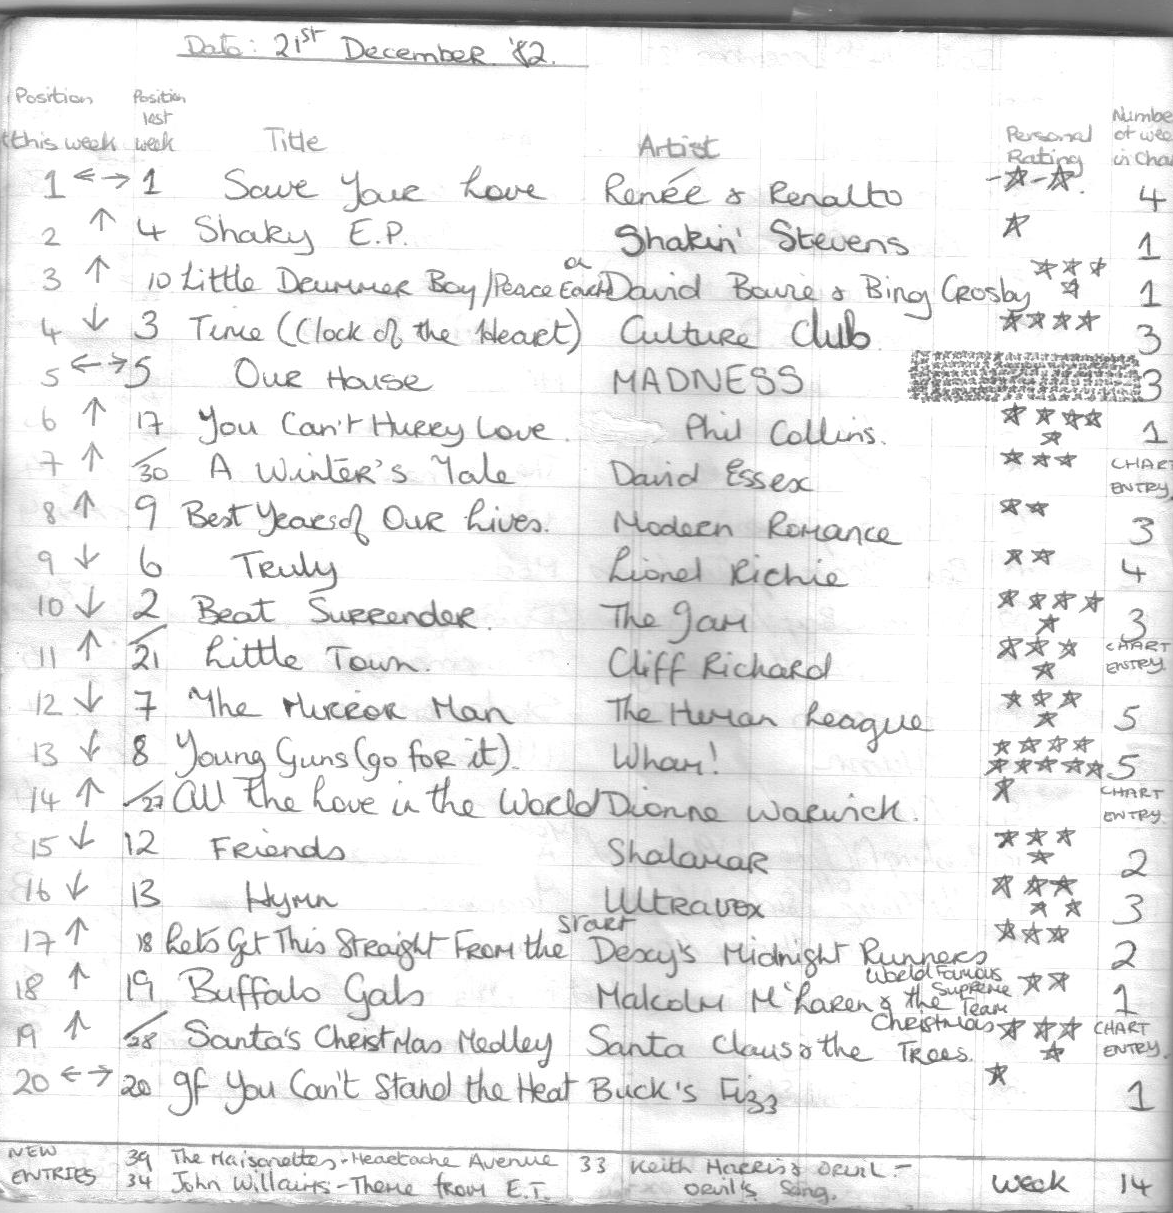 Date: 21st December '82.
Position this week Position last week Title Artist Personal Rating Number of wee in Cha
1 ↔ 1 Save Your Love Renée & Renalto -☆-☆. 4
2 ↑ 4 Shaky E.P. Shakin' Stevens ☆ 1
3 ↑ 10 Little Drummer Boy/Peace on Earth David Bowie & Bing Crosby ☆☆☆☆ 1
4 ↓ 3 Time (Clock of the Heart) Culture Club. ☆☆☆☆ 3
5 ↔ 5 Our House MADNESS 3
6 ↑ 17 You Can't Hurry Love. Phil Collins. ☆☆☆☆☆ 1
7 ↑ 30 A Winter's Tale David Essex ☆☆☆ CHART ENTRY
8 ↑ 9 Best Years of Our Lives. Modern Romance ☆☆ 3
9 ↓ 6 Truly Lionel Richie ☆☆ 4
10 ↓ 2 Beat Surrender. The Jam ☆☆☆☆☆ 3
11 ↑ 21 Little Town. Cliff Richard ☆☆☆☆ CHART ENTRY
12 ↓ 7 The Mirror Man The Human League ☆☆☆☆ 5
13 ↓ 8 Young Guns (go for it). Wham! ☆☆☆☆☆☆☆☆☆ 5
14 ↑ 27 All the Love in the World Dionne Warwick. ☆ CHART ENTRY.
15 ↓ 12 Friends Shalamar ☆☆☆☆ 2
16 ↓ 13 Hymn Ultravox ☆☆☆☆☆ 3
17 ↑ 18 Lets Get This Straight From the Start Dexy's Midnight Runners ☆☆☆ 2
18 ↑ 19 Buffalo Gals Malcolm M'Laren & the World Famous Supreme Team ☆☆ 1
19 ↑ 28 Santa's Christmas Medley Santa Claus & the Christmas Trees. ☆☆☆☆ CHART ENTRY.
20 ↔ 20 If You Can't Stand the Heat Buck's Fizz ☆ 1
NEW ENTRIES 39 The Maisonettes - Heartache Avenue 33 Keith Harris & Orvil - Orvil's Song. Week 14
34 John Willaims - Theme from E.T.